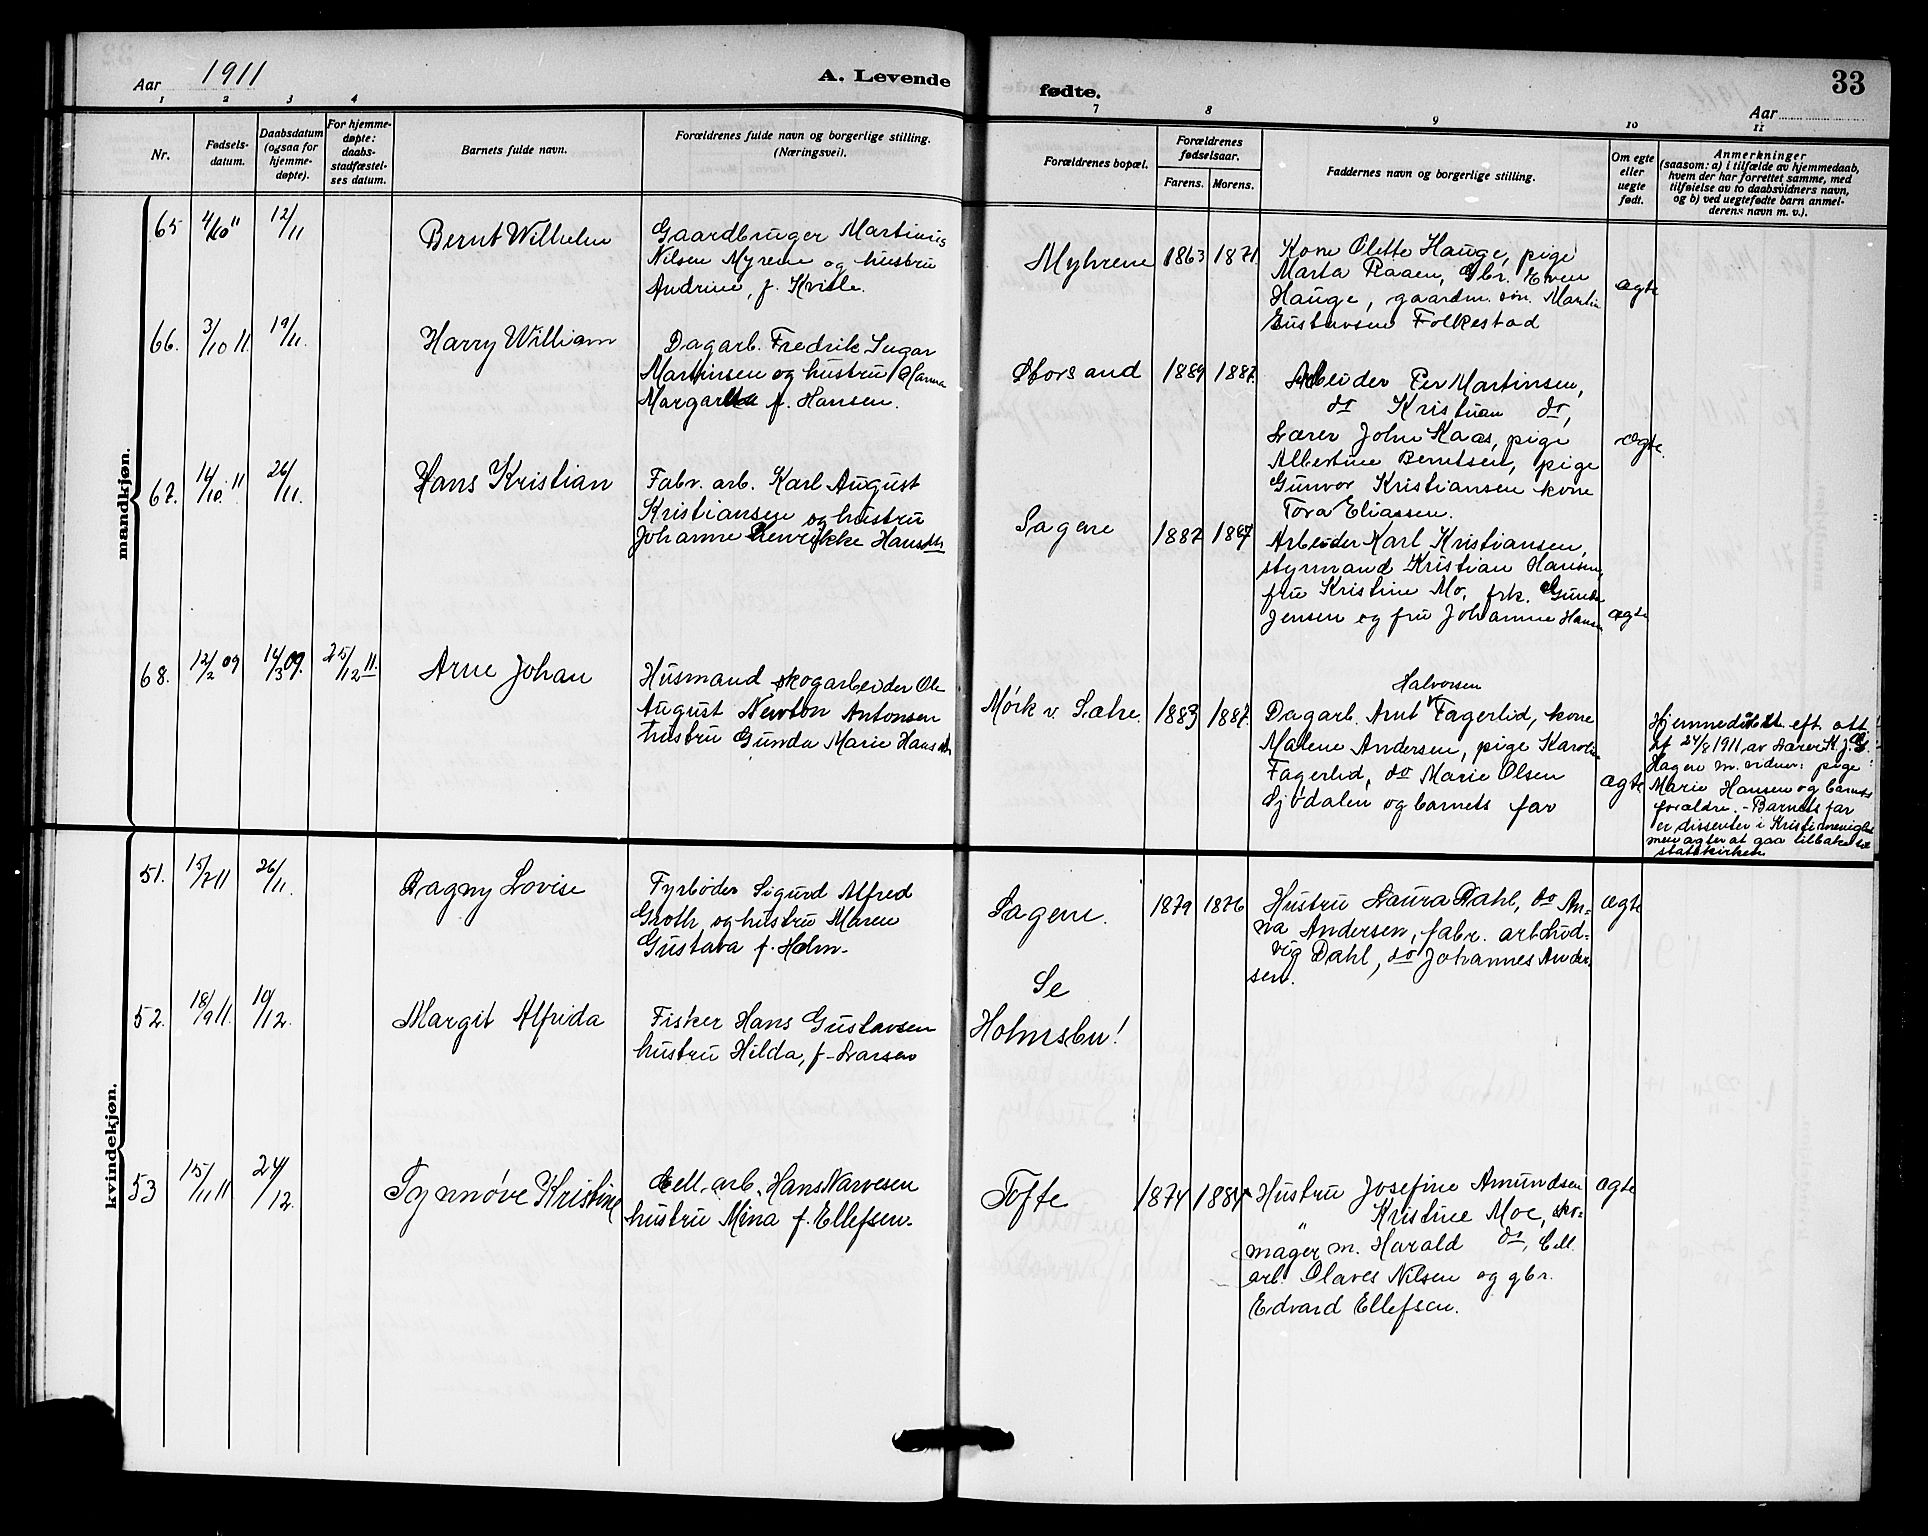 Aar 1911
A. Levende
fødte.
33
Aar
1 2 3 4
7 8 9 10 11
Nr.
Fødsels-
datum.
Daabsdatum
(ogsaa for
hjemme-
døpte).
For hjemme-
døpte:
daabs-
stadfæstel-
ses datum.
Barnets fulde navn.
Forældrenes fulde navn og borgerlige stilling.
(Næringsvei).
Forældrenes bopæl.
Forældrenes
fødselsaar.
Farens. Morens.
Faddernes navn og borgerlige stilling.
Om egte
eller
uegte
født.
Anmerkninger
(saasom: a) i tilfælde av hjemmedaab,
hvem der har forrettet samme, med
tilføielse av to daabsvidners navn,
og b) ved uegtefødte barn anmel-
derens navn m. v.).
mandkjøn.
65 4/10 11 12/11
Bernt Wilhelm
Gaardbruger Martinius
Nilsen Myrene og hustru
Andrine, f. Kvisle.
Myhrene 1863 1871
Kone Olette Hauge, pige
Marta Raaen, Gbr. Even
Hauge, gaardm. søn Martin
Gustavsen Folkestad
ægte
66. 3/10 11. 19/11.
Harry William
Dagarb. Fredrik
Martinsen og hustru Hanna
f. Hansen.
Storsand 1889 1887.
Arbeider Per Martinsen,
do Kristian do,
Lærer John Kaas, pige
Albertine Berntsen, pige
Gunvor Kristiansen kone
Tora Eliassen.
ægte.
67. 14/10 11 26/11.
Hans Kristian
Fabr. arb. Karl August
Kristiansen og hustru
Johanne Henrikke Hansdtr
Sagene 1887 1887
Arbeider Karl Kristiansen,
styrmand Kristian Hansen,
fru Kristine Mo, frk. Gunda
Jensen og fru Johanne Hansen
ægte
68. 12/2 09 14/3 09. 25/12 11.
Arne Johan
Husmand skogarbeider Ole
August Newton Antonsen
hustru Gunda Marie Hansdtr
Mørk v. Sætre. 1883 1887.
Halvorsen
Dagarb. Arnt Fagerlid, kone
Malene Andersen, pige Karoline
Fagerlid, do Marie Olsen
Sjødalen og barnets far
ægte
Hjemmedøbt eft. att.
af 24/8 1911, av Lærer
Hagen m. vidner: pige
Marie Hansen og barnets
forældre. - Barnets far
er dissenter i
men agter at gaa tilbake til
statskirken
kvindekjøn.
51. 15/7 11 26/11.
Dagny Lovise
Fyrbøder Sigurd Alfred
Groth og hustru Maren
Gustava f. Holm.
Sagene. 1879 1876
Hustru Laura Dahl, do An-
na Andersen, fabr. arb Lud-
vig Dahl, do Johannes Ander-
sen.
ægte
52. 18/9 11. 10/12.
Margit Alfrida
Fisker Hans Gustavsen
hustru Hilda, f. Larsen
Se
Holmsbu!
53 15/11 11 24/12.
Synnøve Kristine
Cell. arb. Hans Narvesen
hustru Mina f. Ellefsen.
Tofte 1874 1884
Hustru Josefine Amundsen
" Kristine Moe, sko-
mager m. Harald do, Cell.
arb. Olaves Nilsen og gbr.
Edvard Ellefsen.
ægte